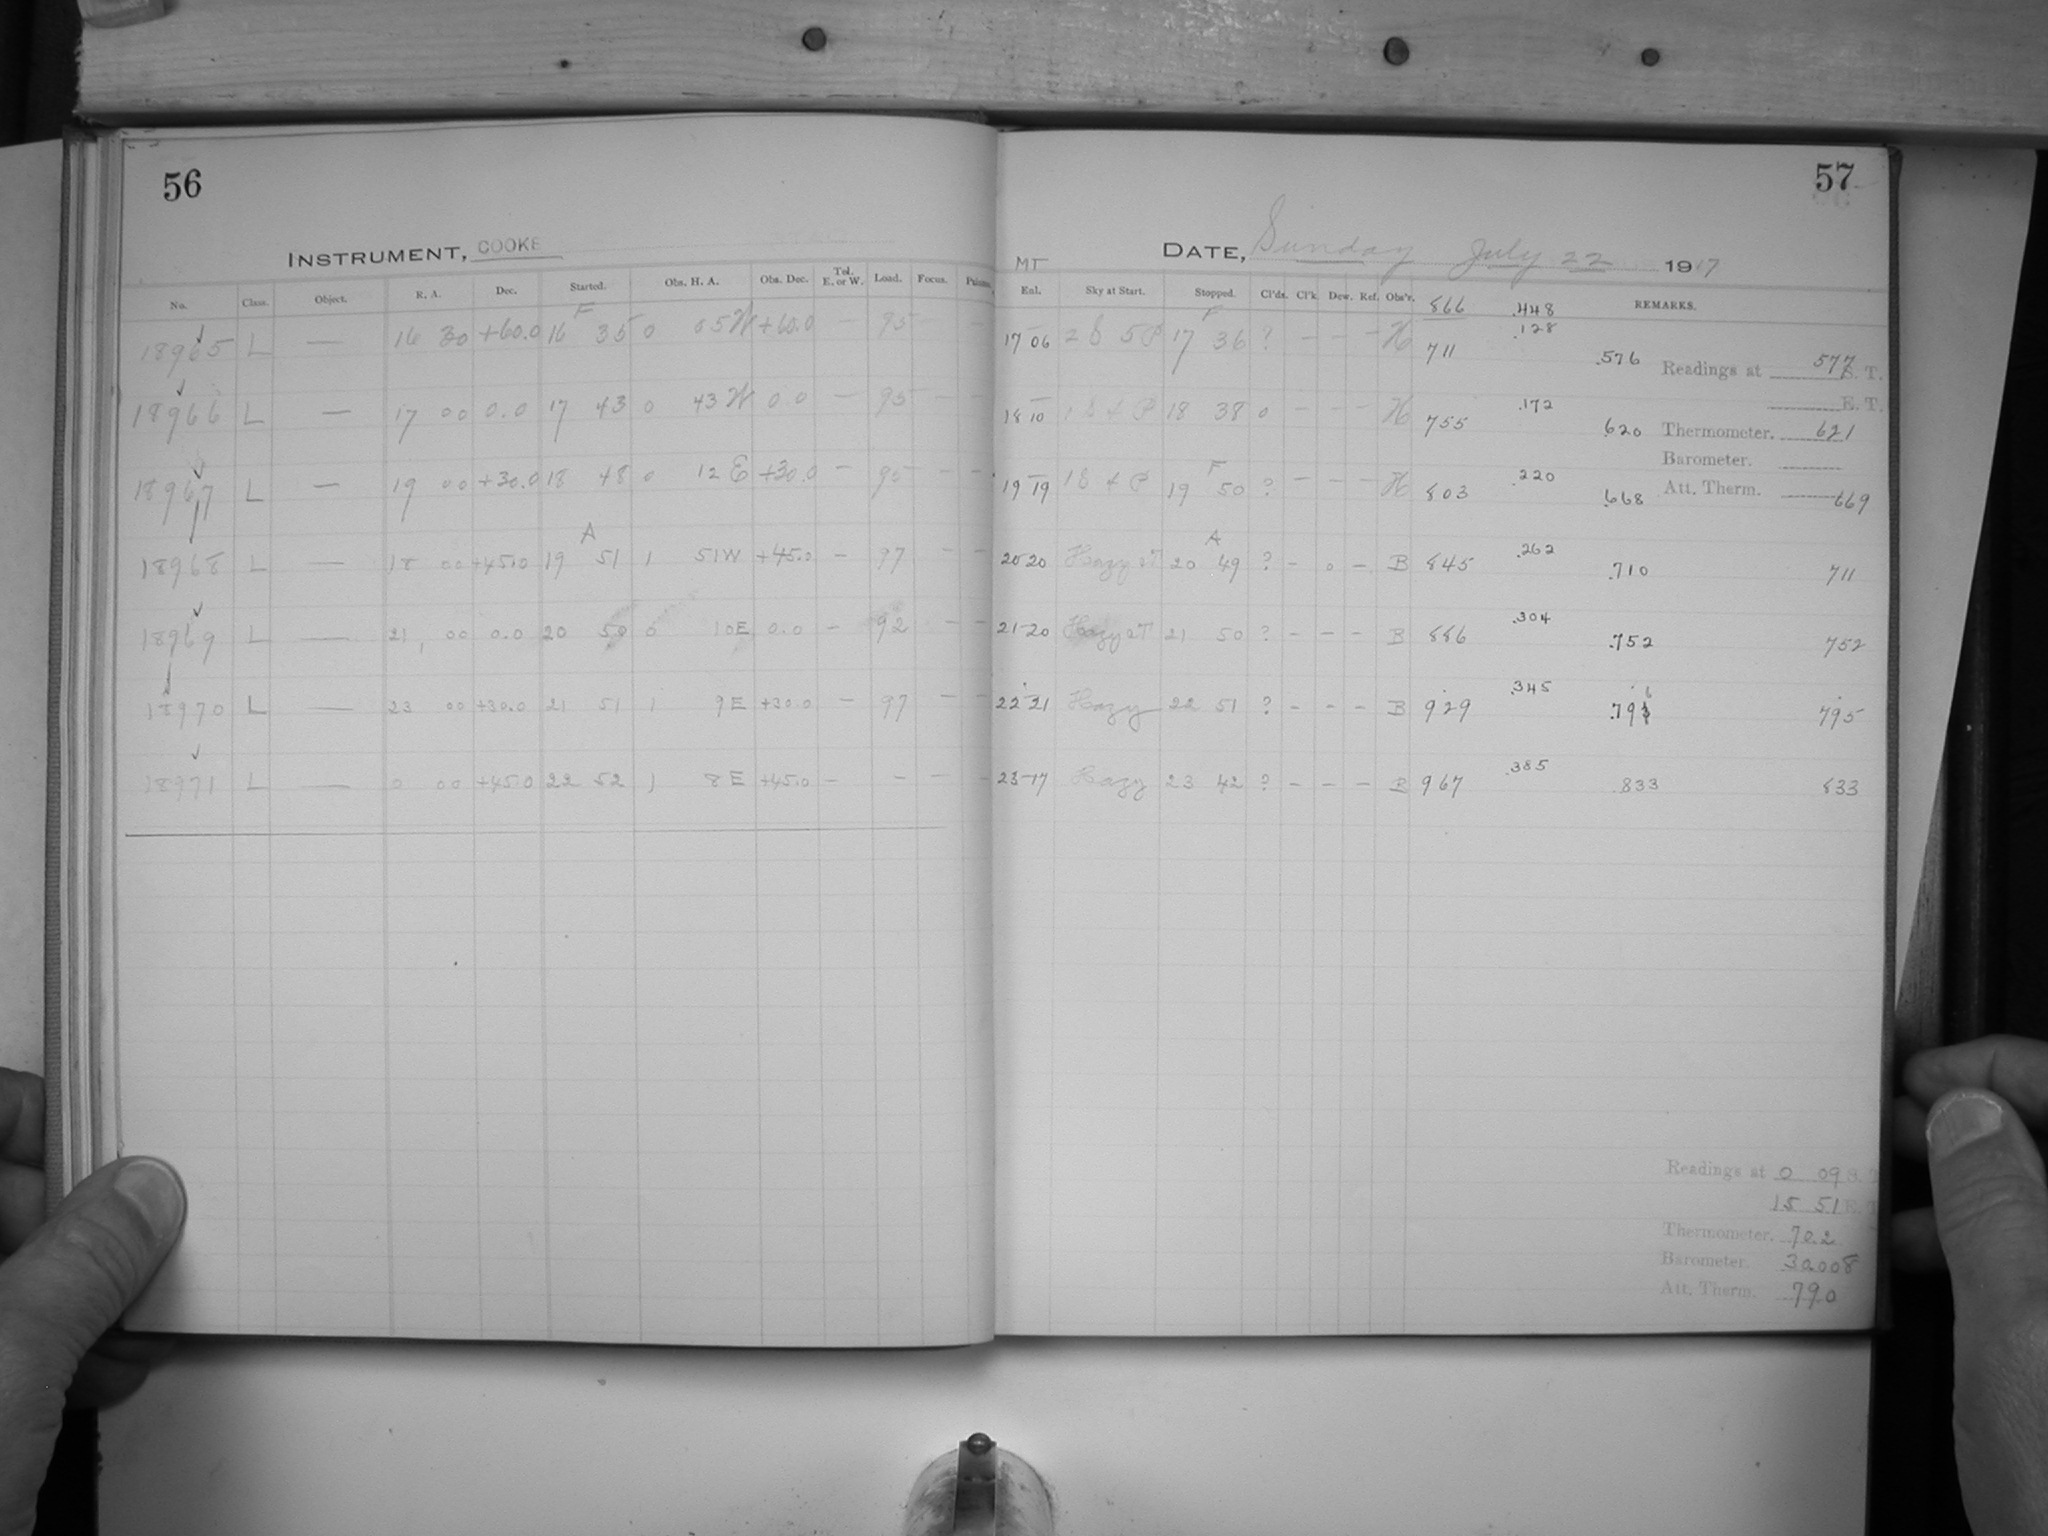 56
INSTRUMENT, COOKE
No. Class. Object. R. A. Dec. Started. Obs. H. A. Obs. Dec. Tel. E. or W. Load. Focus.
F
18965 L — 16 30 +60.0 16 35 0 05 W +60.0 — 95 — —
18966 L — 17 00 0.0 17 43 0 43 W 0.0 — 95 — —
18967 L — 19 00 +30.0 18 48 0 12 E +30.0 — 95 — —
A
18968 L — 18 00 +45.0 19 51 1 51 W +45.0 — 97 — —
18969 L — 21 00 0.0 20 50 0 10 E 0.0 — 92 — —
18970 L — 23 00 +30.0 21 51 1 9 E +30.0 — 97 — —
18971 L — 0 00 +45.0 22 52 1 8 E +45.0 — — — —
57
DATE, Sunday July 22 1917
MT
Enl. Sky at Start. Stopped. Cl'ds. Cl'k Dew. Ref. Obs'r. 866 .448 REMARKS.
F .128
17 06 2 S 5 P 17 36 ? — — — H 711 .576 Readings at 577 S. T.
E. T.
.172
18 10 1 S 4 P 18 38 0 — — — H 755 .620 Thermometer. 621
Barometer.
F .220
19 19 1 S 4 P 19 50 ? — — — H 803 .668 Att. Therm. 669
A .262
20 20 Hazy 2T 20 49 ? — 0 — B 845 .710 711
.304
21 20 Hazy 2T 21 50 ? — — — B 886 .752 752
.345 6
22 21 Hazy 22 51 ? — — — B 929 .79 795
.385
23 17 Hazy 23 42 ? — — — B 967 .833 833
Readings at 0 09 S. T
15 51 E. T
Thermometer. 70.2
Barometer. 30.008
Att. Therm. 79.0